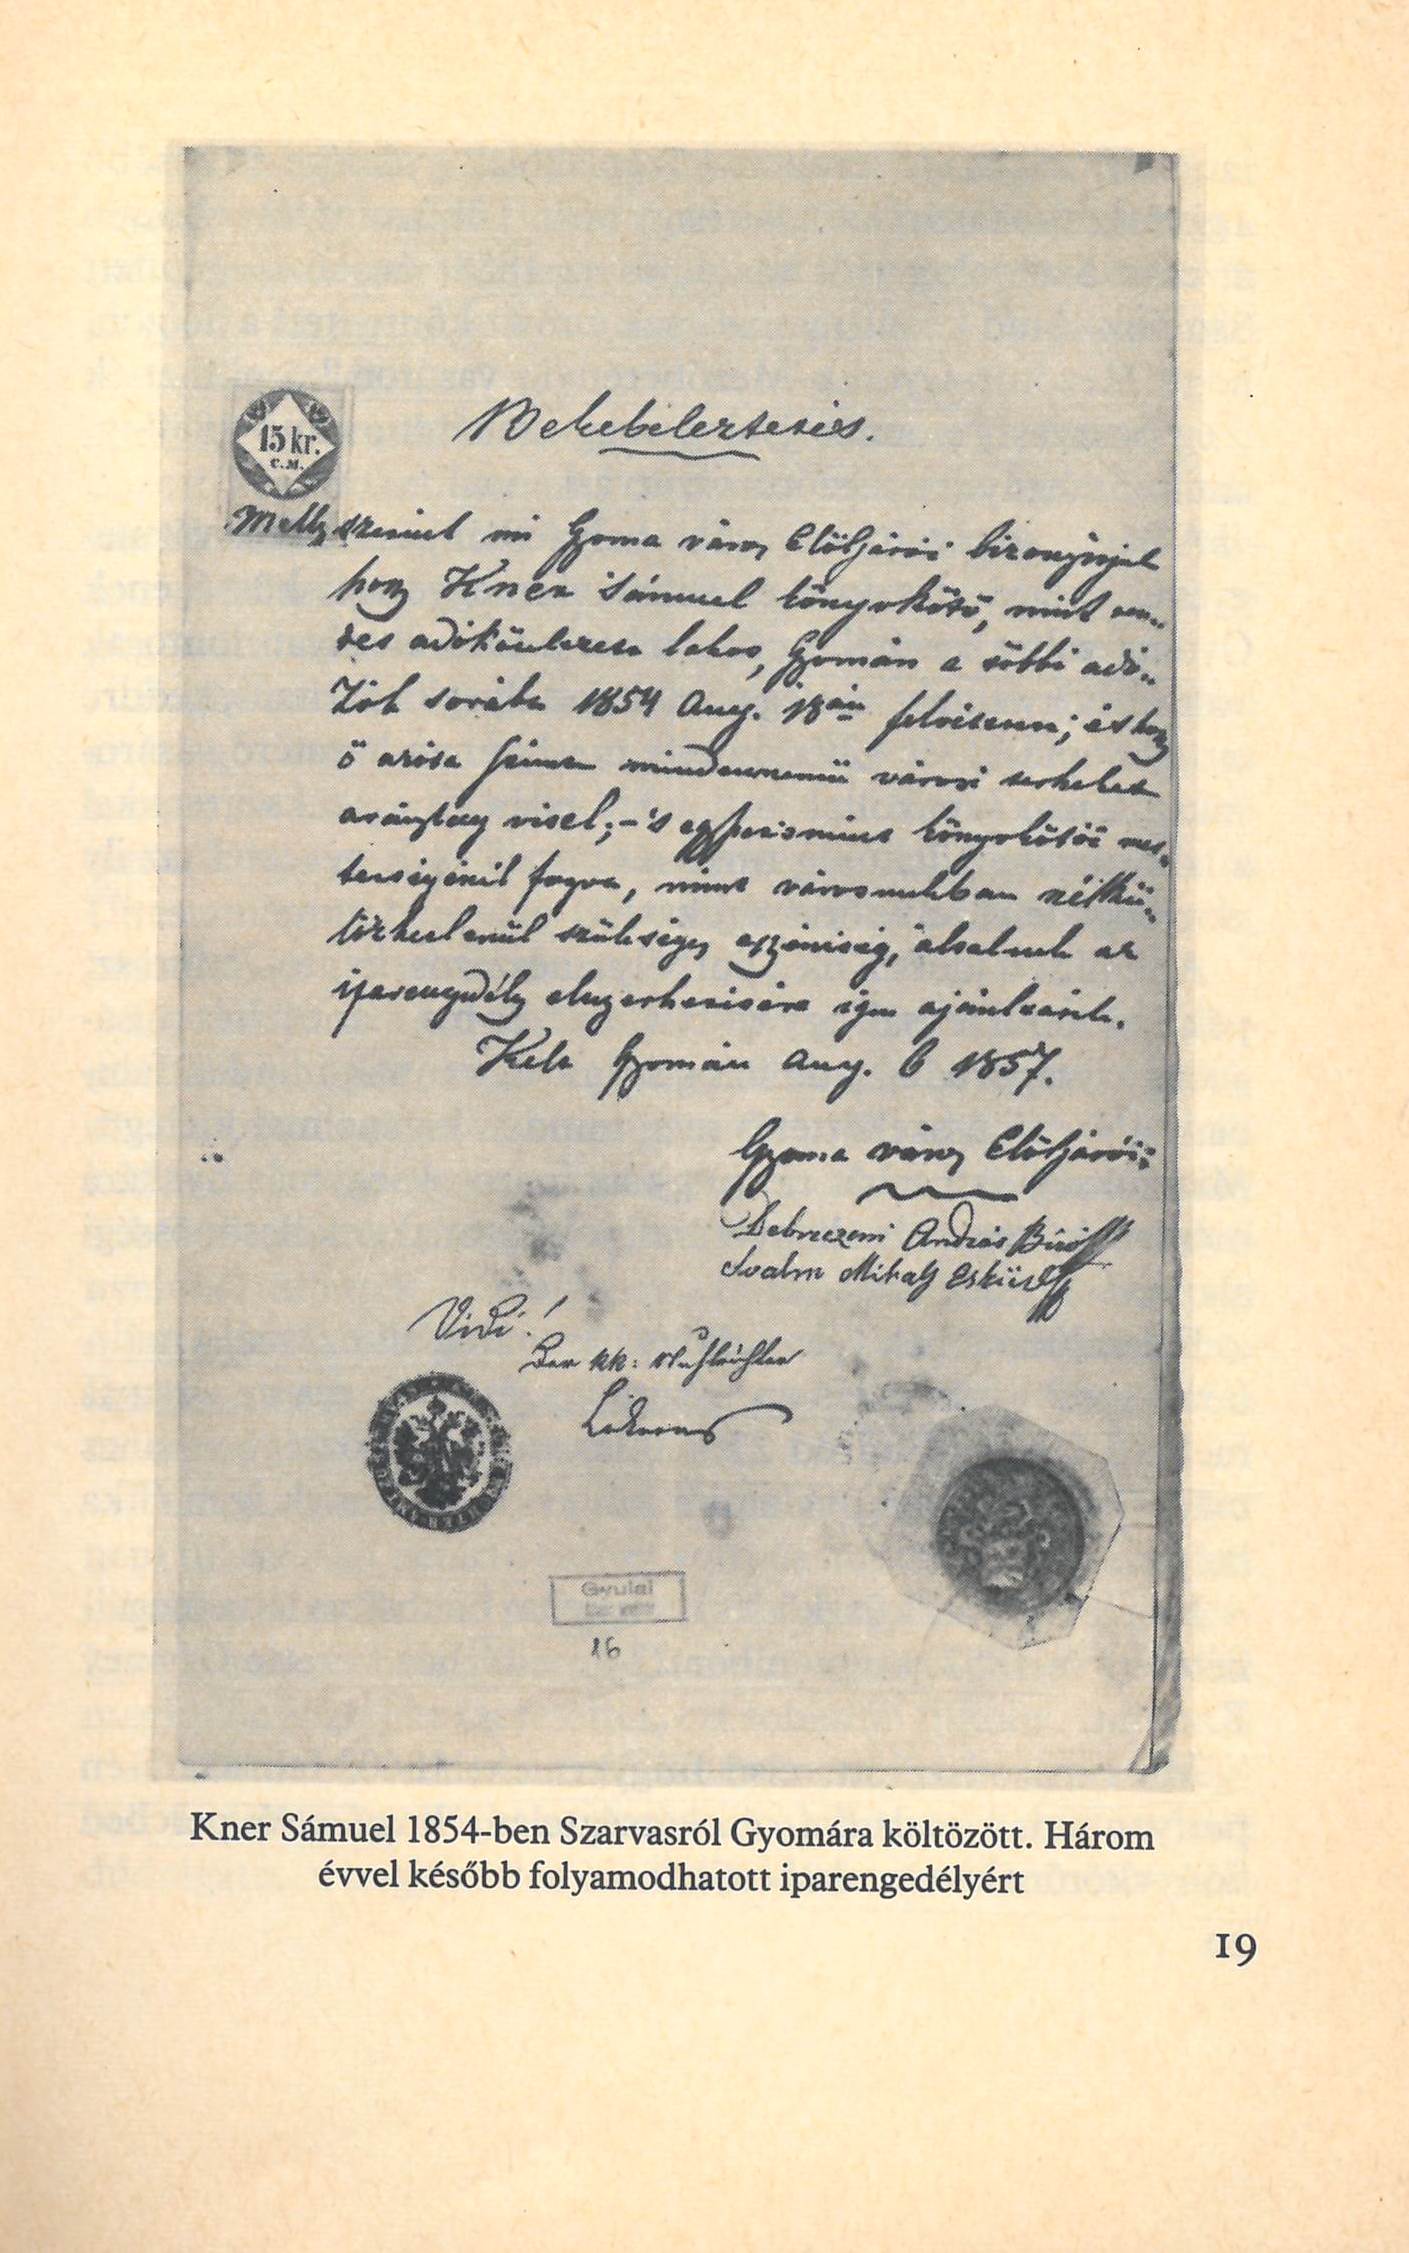 Bekebeleztetés.
15 kr.
C.M.
Melly szerint mi Gyoma város Elöljárói bizonyítjuk
hogy Kner Sámuel könyvkötő, mint ren„
des adóköteles lakos, Gyomán a többi adó„
zók sorába 1854 Aug. 18án felvétetett; és hogy
ő azóta mindennemű városi terheket
aránylag visel; – 's könyvkötői mes„
terségénél fogva, mint városunkban nélkü„
lözhetlenül szükséges egyéniség, által az
iparengedély elnyerhetésére ajántatik.
Kelt Gyomán Aug. 6 1857.
Gyoma város Elöljárói:
Debreczeni András Biró
Mihály Esküdt
Vidi!
Der kk: Stuhlrichter
Gyulai
16
Kner Sámuel 1854-ben Szarvasról Gyomára költözött. Három
évvel később folyamodhatott iparengedélyért
19